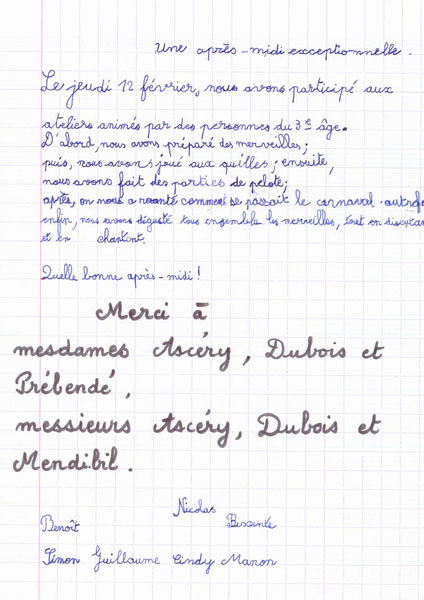 Une après-midi exceptionnelle.
Le jeudi 12 février, nous avons participé aux
ateliers animés par des personnes du 3e âge.
D'abord, nous avons préparé des merveilles;
puis, nous avons joué aux quilles; ensuite,
nous avons fait des parties de pelote;
après, on nous a raconté comment se passait le carnaval autrefo
enfin, nous avons dégusté tous ensemble les merveilles, tout en discutan
et en chantant.
Quelle bonne après-midi!
Merci à
mesdames Ascéry, Dubois et
Prébendé,
messieurs Ascéry, Dubois et
Mendibil.
Nicolas
Benoît Bixente
Simon Guillaume Cindy Manon